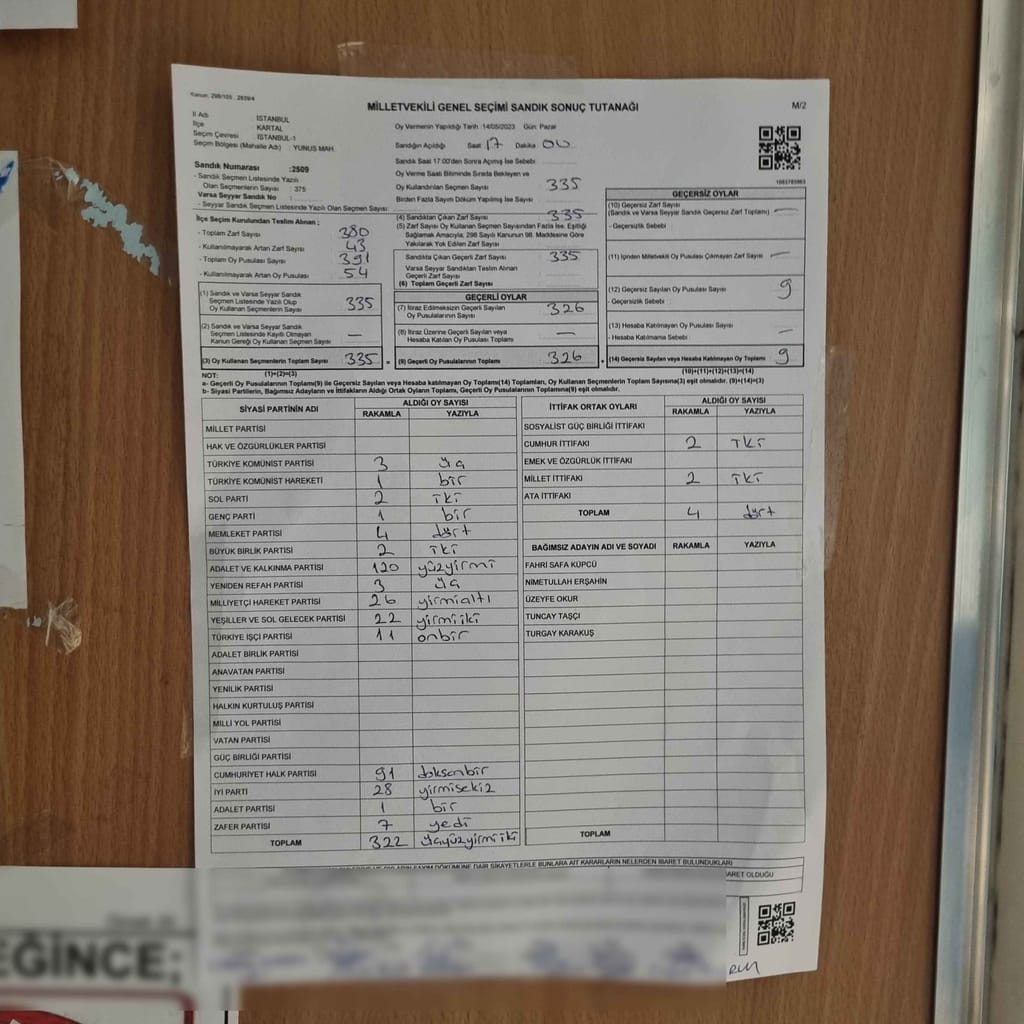 Kanun. 298/105 . 2839/4
MİLLETVEKİLİ GENEL SEÇİMİ SANDIK SONUÇ TUTANAĞI
M/2
İl Adı : İSTANBUL
İlçe : KARTAL
Seçim Çevresi : İSTANBUL-1
Seçim Bölgesi (Mahalle Adı) : YUNUS MAH.
Sandık Numarası :2509
- Sandık Seçmen Listesinde Yazılı
Olan Seçmenlerin Sayısı : 375
Varsa Seyyar Sandık No :
- Seyyar Sandık Seçmen Listesinde Yazılı Olan Seçmen Sayısı:
Oy Vermenin Yapıldığı Tarih :14/05/2023 Gün: Pazar
Sandığın Açıldığı Saat 17 Dakika 00
Sandık Saat 17:00'den Sonra Açımış İse Sebebi
Oy Verme Saati Bitiminde Sırada Bekleyen ve
Oy Kullandırılan Seçmen Sayısı 335
Birden Fazla Sayım Döküm Yapılmış İse Sayısı
İlçe Seçim Kurulundan Teslim Alınan ;
- Toplam Zarf Sayısı 380
- Kullanılmayarak Artan Zarf Sayısı 43
- Toplam Oy Pusulası Sayısı 391
- Kullanılmayarak Artan Oy Pusulası 54
(1) Sandık ve Varsa Seyyar Sandık
Seçmen Listesinde Yazılı Olup
Oy Kullanan Seçmenlerin Sayısı 335
(2) Sandık ve Varsa Seyyar Sandık
Seçmen Listesinde Kayıtlı Olmayan
Kanun Gereği Oy Kullanan Seçmen Sayısı —
(3) Oy Kullanan Seçmenlerin Toplam Sayısı 335 =
(1)+(2)=(3)
(4) Sandıktan Çıkan Zarf Sayısı 335
(5) Zarf Sayısı Oy Kullanan Seçmen Sayısından Fazla İse, Eşitliği
Sağlamak Amacıyla, 298 Sayılı Kanunun 98. Maddesine Göre
Yakılarak Yok Edilen Zarf Sayısı
Sandıkta Çıkan Geçerli Zarf Sayısı 335
Varsa Seyyar Sandıktan Teslim Alınan
Geçerli Zarf Sayısı
(6) Toplam Geçerli Zarf Sayısı
GEÇERLİ OYLAR
(7) İtiraz Edilmeksizin Geçerli Sayılan
Oy Pusulalarının Sayısı 326
(8) İtiraz Üzerine Geçerli Sayılan veya
Hesaba Katılan Oy Pusulası Toplamı —
(9) Geçerli Oy Pusulalarının Toplamı 326 +
GEÇERSİZ OYLAR
(10) Geçersiz Zarf Sayısı
(Sandık ve Varsa Seyyar Sandık Geçersiz Zarf Toplamı) —
- Geçersizlik Sebebi :
(11) İçinden Milletvekili Oy Pusulası Çıkmayan Zarf Sayısı —
(12) Geçersiz Sayılan Oy Pusulası Sayısı 9
- Geçersizlik Sebebi :
(13) Hesaba Katılmayan Oy Pusulası Sayısı —
- Hesaba Katılmama Sebebi :
(14) Geçersiz Sayılan veya Hesaba Katılmayan Oy Toplamı 9
(10)+(11)+(12)+(13)=(14)
NOT:
a- Geçerli Oy Pusulalarının Toplamı(9) ile Geçersiz Sayılan veya Hesaba katılmayan Oy Toplamı(14) Toplamları, Oy Kullanan Seçmenlerin Toplam Sayısına(3) eşit olmalıdır. (9)+(14)=(3)
b- Siyasi Partilerin, Bağımsız Adayların ve İttifakların Aldığı Ortak Oyların Toplamı, Geçerli Oy Pusulalarının Toplamına(9) eşit olmalıdır.
SİYASİ PARTİNİN ADI ALDIĞI OY SAYISI
RAKAMLA YAZIYLA
MİLLET PARTİSİ
HAK VE ÖZGÜRLÜKLER PARTİSİ
TÜRKİYE KOMÜNİST PARTİSİ 3 üç
TÜRKİYE KOMÜNİST HAREKETİ 1 bir
SOL PARTİ 2 iki
GENÇ PARTİ 1 bir
MEMLEKET PARTİSİ 4 dört
BÜYÜK BİRLİK PARTİSİ 2 iki
ADALET VE KALKINMA PARTİSİ 120 yüzyirmi
YENİDEN REFAH PARTİSİ 3 üç
MİLLİYETÇİ HAREKET PARTİSİ 26 yirmialtı
YEŞİLLER VE SOL GELECEK PARTİSİ 22 yirmiiki
TÜRKİYE İŞÇİ PARTİSİ 11 onbir
ADALET BİRLİK PARTİSİ
ANAVATAN PARTİSİ
YENİLİK PARTİSİ
HALKIN KURTULUŞ PARTİSİ
MİLLİ YOL PARTİSİ
VATAN PARTİSİ
GÜÇ BİRLİĞİ PARTİSİ
CUMHURİYET HALK PARTİSİ 91 doksanbir
İYİ PARTİ 28 yirmisekiz
ADALET PARTİSİ 1 bir
ZAFER PARTİSİ 7 yedi
TOPLAM 322 üçyüzyirmiiki
İTTİFAK ORTAK OYLARI ALDIĞI OY SAYISI
RAKAMLA YAZIYLA
SOSYALİST GÜÇ BİRLİĞİ İTTİFAKI
CUMHUR İTTİFAKI 2 iki
EMEK VE ÖZGÜRLÜK İTTİFAKI
MİLLET İTTİFAKI 2 iki
ATA İTTİFAKI
TOPLAM 4 dört
BAĞIMSIZ ADAYIN ADI VE SOYADI RAKAMLA YAZIYLA
FAHRİ SAFA KÜPCÜ
NİMETULLAH ERŞAHİN
ÜZEYFE OKUR
TUNCAY TAŞÇI
TURGAY KARAKUŞ
TOPLAM
DÖKÜMÜNE DAİR ŞİKAYETLERLE BUNLARA AİT KARARLARIN NELERDEN İBARET BULUNDUKLARI
BARET OLDUĞU
EĞİNCE;